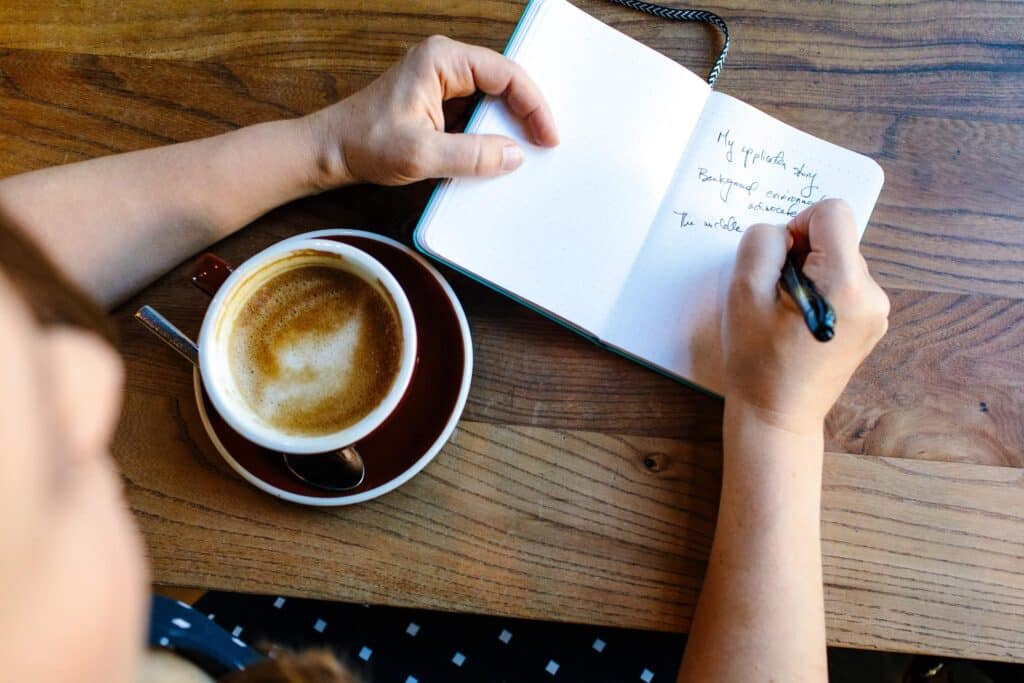 My application story
Background environmental
advocate
The middle